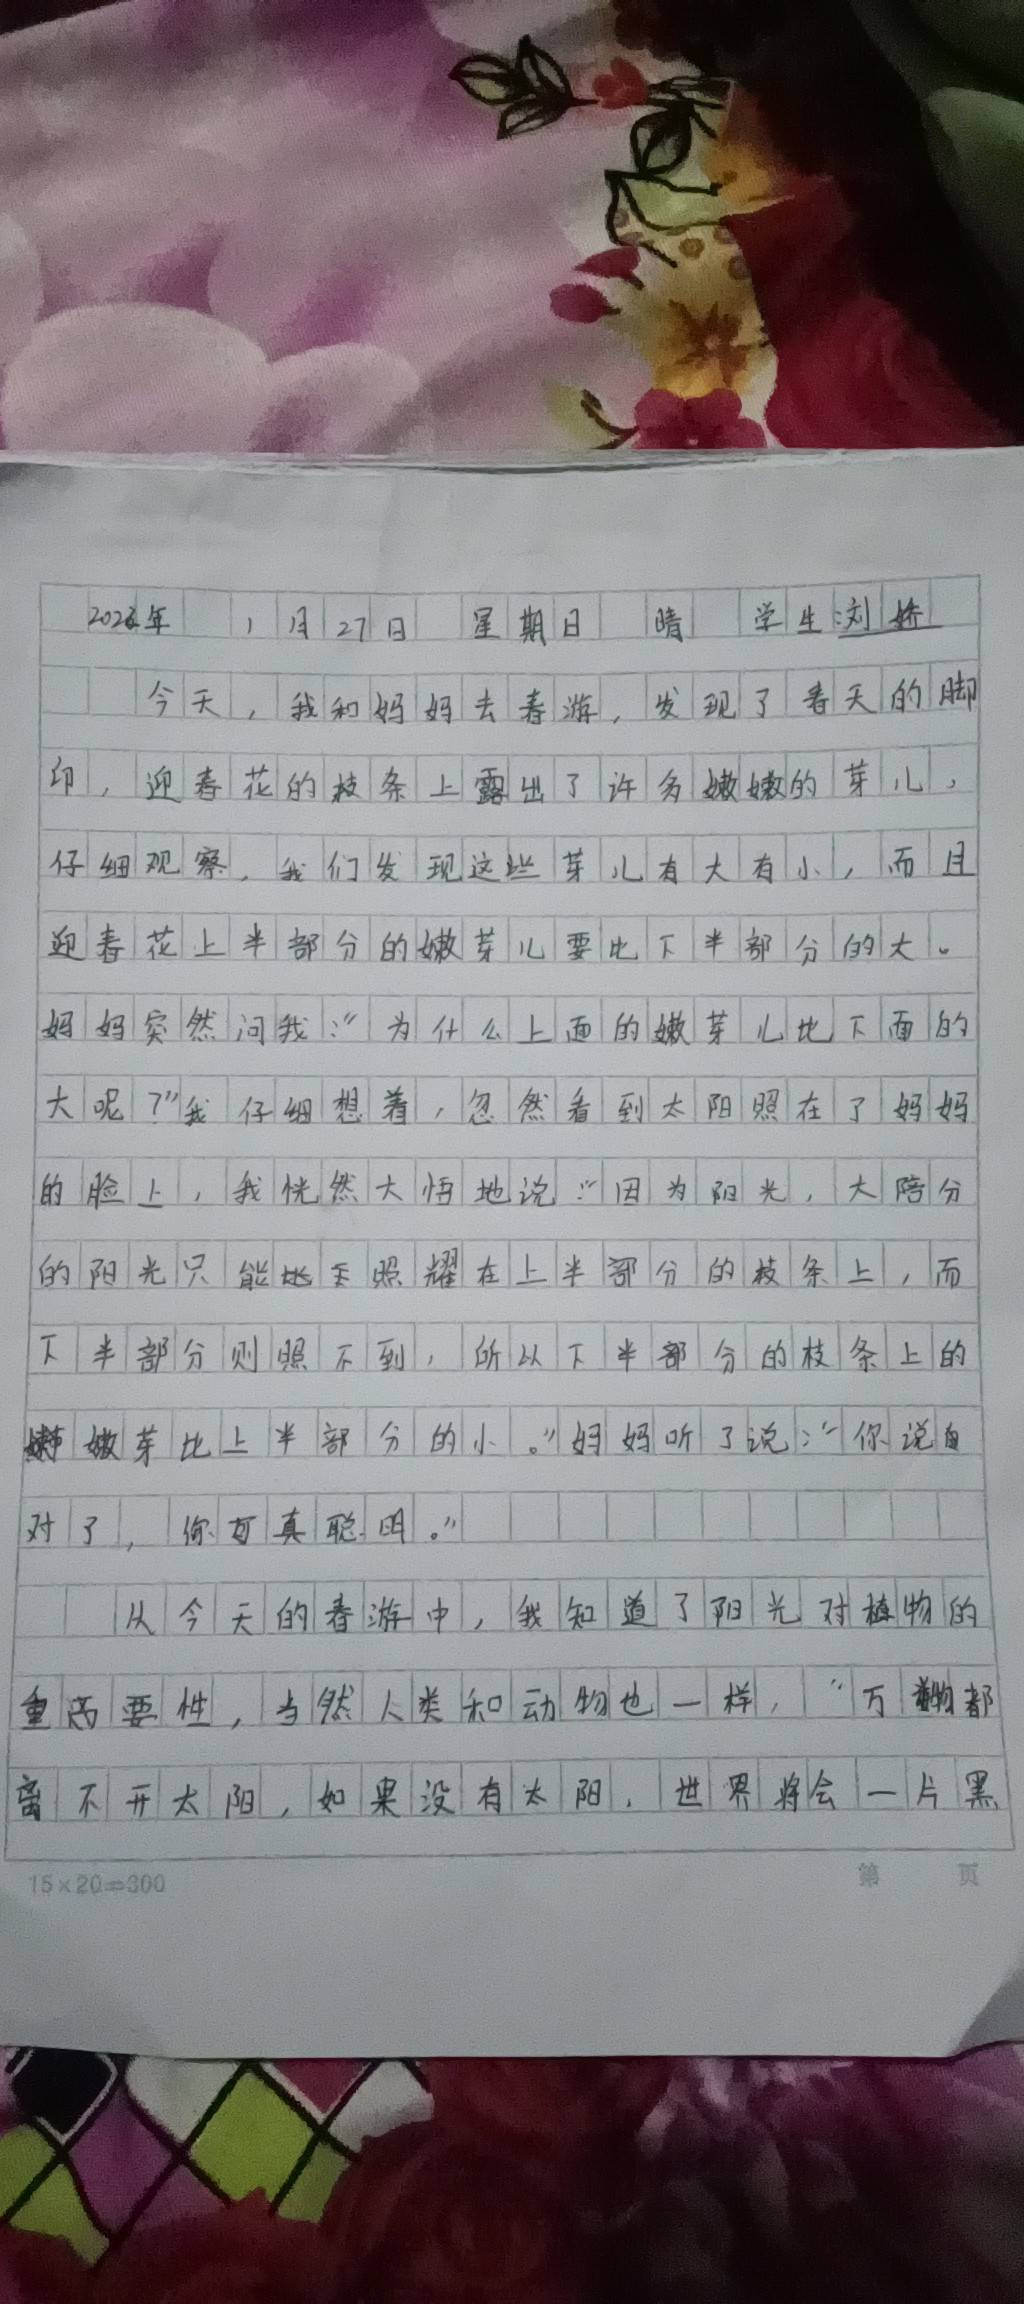 年 1月27日 星期日 晴 学生:刘娇
今天，我和妈妈去春游，发现了春天的脚
印，迎春花的枝条上露出了许多嫩嫩的芽儿，
仔细观察，我们发现这些芽儿有大有小，而且
迎春花上半部分的嫩芽儿要比下半部分的大。
妈妈突然问我：“为什么上面的嫩芽儿比下面的
大呢？”我仔细想着，忽然看到太阳照在了妈妈
的脸上，我恍然大悟地说：“因为阳光，大陪分
的阳光只能照耀在上半部分的枝条上，而
下半部分则照不到，所以下半部分的枝条上的
嫩芽比上半部分的小。”妈妈听了说：“你说
对了，你可真聪明。”
从今天的春游中，我知道了阳光对植物的
重要性，当然人类和动物也一样，“万物都
离不开太阳，如果没有太阳，世界将会一片黑
15×20=300 第 页